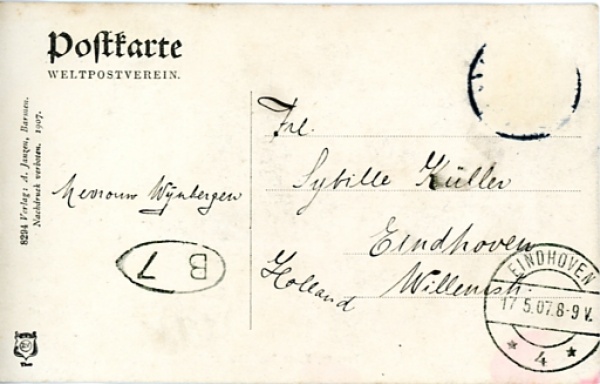 Postkarte
WELTPOSTVEREIN.
8294 Verlag: A. Jansen, Barmen.
Nachdruck verboten. 1907.
Frl.
Sybille Küller
Eindhoven
Willemstr.
Holland
Mevrouw Wynbergen
B 7
EINDHOVEN
17 5.07.8-9 V.
* 4 *